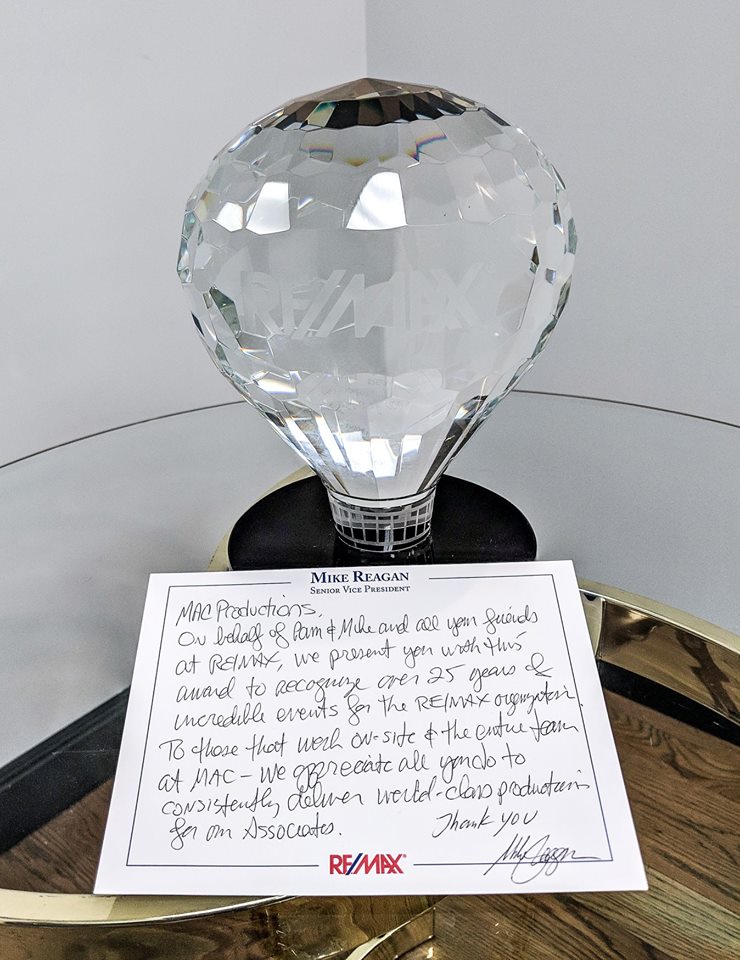 RE/MAX
MIKE REAGAN
SENIOR VICE PRESIDENT
MAC Productions,
On behalf of Pam & Mike and all your friends
at RE/MAX, we present you with this
award to recognize over 25 years of
incredible events for the RE/MAX organization.
To those that work on-site & the entire team
at MAC – we appreciate all you do to
consistently deliver world-class productions
for our Associates.
Thank you
RE/MAX